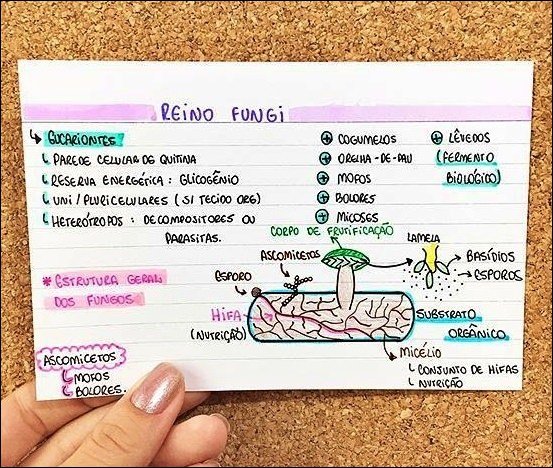 REINO FUNGI
↳ EUCARIONTES
↳ PAREDE CELULAR DE QUITINA
↳ RESERVA ENERGÉTICA : GLICOGÊNIO
↳ UNI / PLURICELULARES ( S/ TECIDO ORG )
↳ HETERÓTROFOS : DECOMPOSITORES OU
PARASITAS.
⊕ COGUMELOS
⊕ ORELHA-DE-PAU
⊕ MOFOS
⊕ BOLORES
⊕ MICOSES
⊕ LÊVEDOS
(FERMENTO
BIOLÓGICO)
* ESTRUTURA GERAL
DOS FUNGOS
CORPO DE FRUTIFICAÇÃO
ASCOMICETOS
ESPORO
HIFA
(NUTRIÇÃO)
LAMELA
BASÍDIOS
ESPOROS
SUBSTRATO
ORGÂNICO
MICÉLIO
↳ CONJUNTO DE HIFAS
↳ NUTRIÇÃO
ASCOMICETOS
↳ MOFOS
↳ BOLORES.